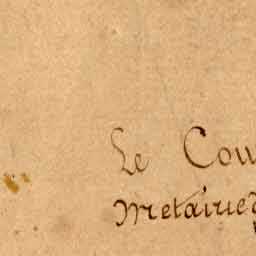 Le Cou
metairie